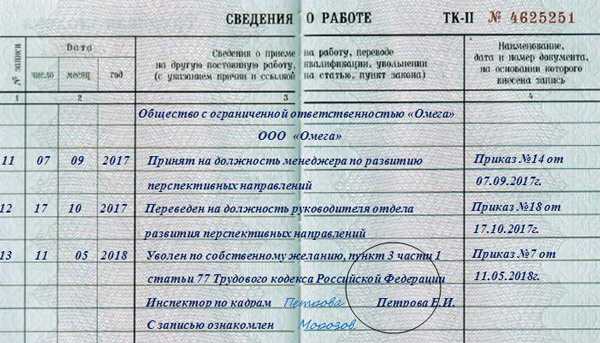 СВЕДЕНИЯ О РАБОТЕ ТК-II № 4625251
№ записи
Дата
Сведения о приеме на работу, переводе
на другую постоянную работу, квалификации, увольнении
(с указанием причин и ссылкой на статью, пункт закона)
Наименование,
дата и номер документа,
на основании которого
внесена запись
число месяц год
1 2 3 4
Общество с ограниченной ответственностью «Омега»
ООО «Омега»
11 07 09 2017 Принят на должность менеджера по развитию Приказ №14 от
перспективных направлений 07.09.2017г.
12 17 10 2017 Переведен на должность руководителя отдела Приказ №18 от
развития перспективных направлений 17.10.2017г.
13 11 05 2018 Уволен по собственному желанию, пункт 3 части 1 Приказ №7 от
статьи 77 Трудового кодекса Российской Федерации 11.05.2018г.
Инспектор по кадрам Петрова Петрова Е.И.
С записью ознакомлен Морозов